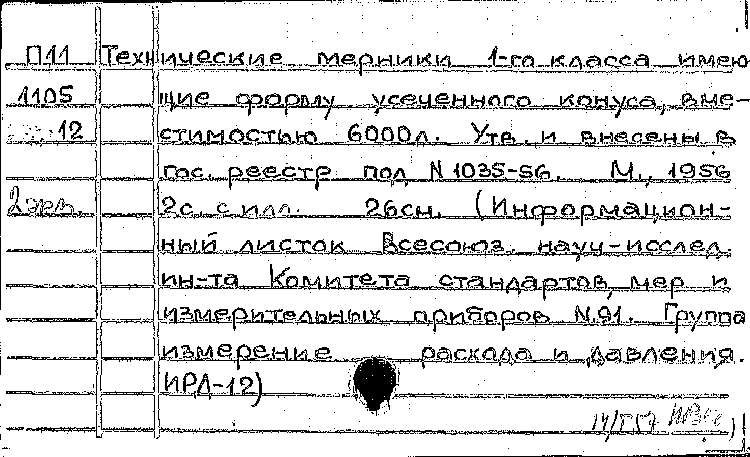 П11 Технические мерники 1-го класса имею
1105 щие форму усеченного конуса, вме-
12 стимостью 6000л. Утв. и внесены в
гос. реестр под N 1035-56. М., 1956
2 экз. 2с. с илл. 26см. (Информацион-
ный листок Всесоюз. науч-исслед.
ин-та Комитета стандартов, мер и
измерительных приборов N.91. Группа
измерение расхода и давления.
ИРД-12)